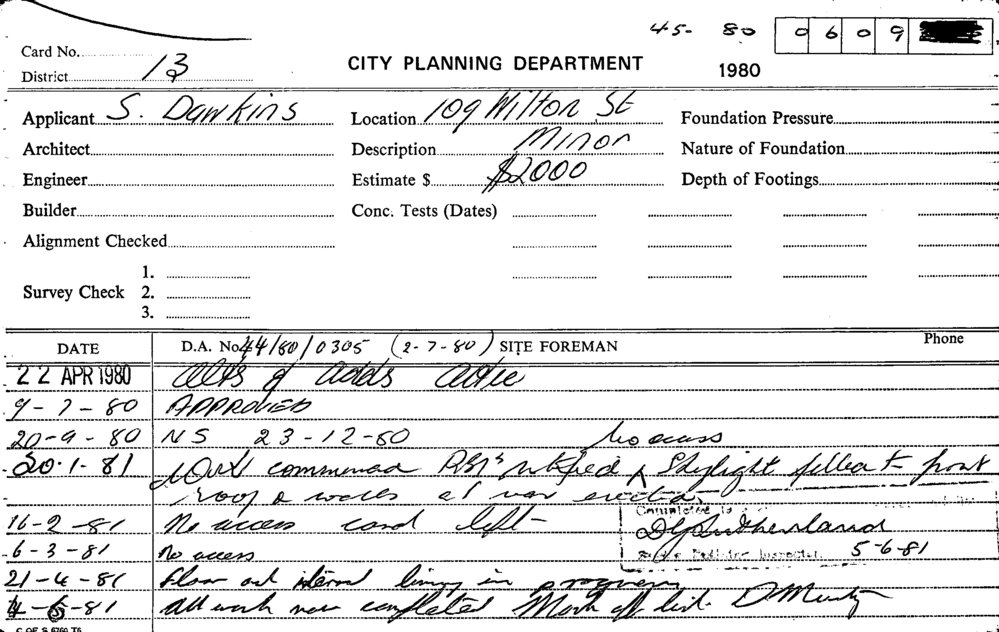 45- 80 0609
Card No.
District 13
CITY PLANNING DEPARTMENT
1980
Applicant S. Dawkins Location 109 Wilton St Foundation Pressure
Architect Description Minor Nature of Foundation
Engineer Estimate $ $2000 Depth of Footings
Builder Conc. Tests (Dates)
Alignment Checked
1.
Survey Check 2.
3.
DATE D.A. No. 44/80/0305 (2-7-80) SITE FOREMAN Phone
22 APR 1980 Alts & Adds
9-7-80 APPROVED
20-9-80 NS 23-12-80 No access
20.1.81 Work commenced Skylight front
roof & walls at rear erected
16-2-81 No access card left- Completed
D G Sutherland
6-3-81 No access 5-6-81
21-4-81 Floor and internal lining in progress
4-6-81 All work now completed Mark off list.
C OF S 6760 T6